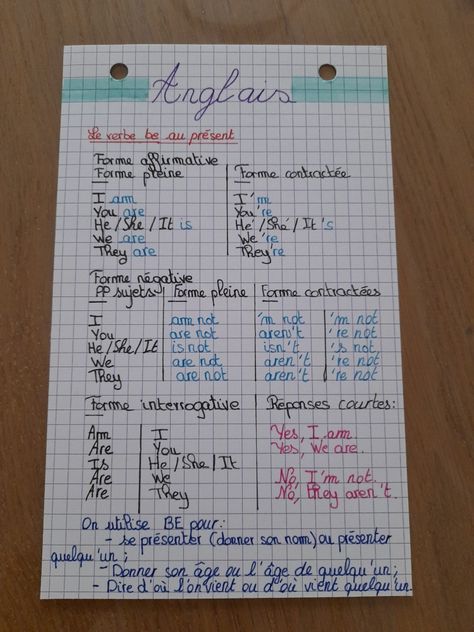 Anglais
Le verbe be au présent
Forme affirmative
Forme pleine Forme contractée
I am I'm
You are You're
He/She/It is He/She/It's
We are We're
They are They're
Forme négative
PP sujets Forme pleine Forme contractées
I am not 'm not 'm not
You are not aren't 're not
He/She/It is not isn't 's not
We are not aren't 're not
They are not aren't 're not
Forme interrogative Réponses courtes:
Am I Yes, I am
Are You Yes, we are.
Is He/She/It
Are We No, I'm not.
Are They No, they aren't.
On utilise BE pour:
- se présenter (donner son nom) ou présenter
quelqu'un;
- Donner son âge ou l'âge de quelqu'un;
- Dire d'où l'on vient ou d'où vient quelqu'un.